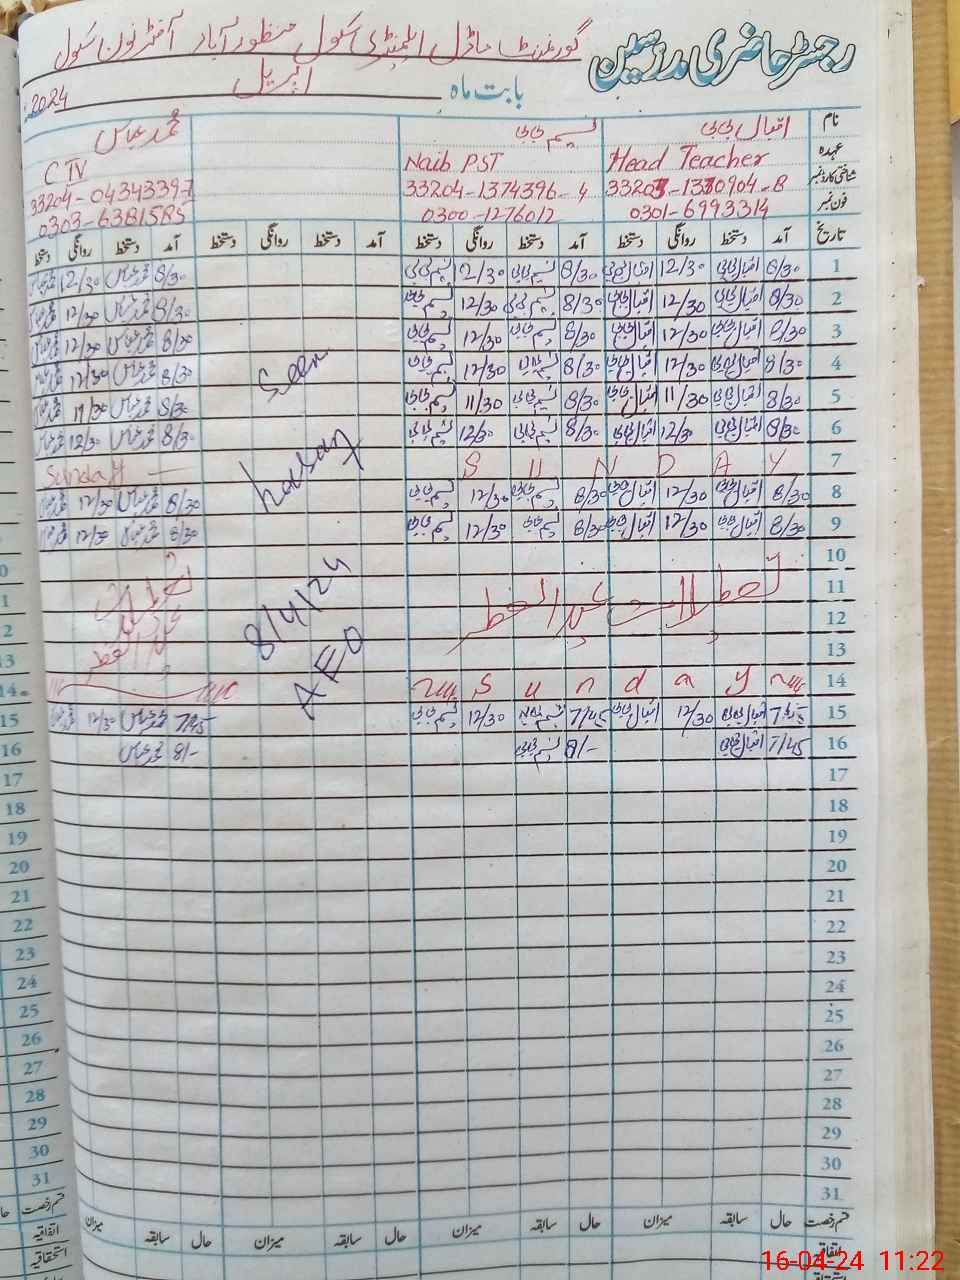 رجسٹر حاضری مدرسین گورنمنٹ ماڈل ایلیمنٹری سکول منظور آباد آفٹر نون سکول
بابت ماہ اپریل 2024
نام اقبال بی بی نسیم بی بی محمد عباس
عہدہ Head Teacher Naib PST C TV
شناختی کارڈ نمبر 33203-1330904-8 33204-1374396-4 33204-0434339-7
فون نمبر 0301-6993314 0300-1276012 0303-6381585
تاریخ آمد دستخط روانگی دستخط آمد دستخط روانگی دستخط آمد دستخط روانگی دستخط آمد دستخط روانگی دستخط
1 8/30 اقبال بی بی 12/30 اقبال بی بی 8/30 نسیم بی بی 12/30 نسیم بی بی 8/30 محمد عباس 12/30 محمد عباس
2 8/30 اقبال بی بی 12/30 اقبال بی بی 8/30 نسیم بی بی 12/30 نسیم بی بی 8/30 محمد عباس 12/30 محمد عباس
3 8/30 اقبال بی بی 12/30 اقبال بی بی 8/30 نسیم بی بی 12/30 نسیم بی بی 8/30 محمد عباس 12/30 محمد عباس
4 8/30 اقبال بی بی 12/30 اقبال بی بی 8/30 نسیم بی بی 12/30 نسیم بی بی Seen 8/30 محمد عباس 12/30 محمد عباس
5 8/30 اقبال بی بی 11/30 اقبال بی بی 8/30 نسیم بی بی 11/30 نسیم بی بی 8/30 محمد عباس 11/30 محمد عباس
6 8/30 اقبال بی بی 12/30 اقبال بی بی 8/30 نسیم بی بی 12/30 نسیم بی بی 8/30 محمد عباس 12/30 محمد عباس
7 SUNDAY Sunday
8 8/30 اقبال بی بی 12/30 اقبال بی بی 8/30 نسیم بی بی 12/30 نسیم بی بی 8/30 محمد عباس 12/30 محمد عباس
9 8/30 اقبال بی بی 12/30 اقبال بی بی 8/30 نسیم بی بی 12/30 نسیم بی بی 8/30 محمد عباس 12/30 محمد عباس
10
11 تعطیلات عید الفطر 8/4/24 تعطیلات عید الفطر
12
13 AEO
14 Sunday
15 7/45 اقبال بی بی 12/30 اقبال بی بی 7/45 نسیم بی بی 12/30 نسیم بی بی 7/45 محمد عباس 12/30 محمد عباس
16 7/45 اقبال بی بی 8/- نسیم بی بی 8/- محمد عباس
17
18
19
20
21
22
23
24
25
26
27
28
29
30
31
قسم رخصت حال سابقہ میزان حال سابقہ میزان حال سابقہ میزان حال سابقہ میزان قسم رخصت حال
اتفاقیہ اتفاقیہ
استحقاقیہ
16-04-24 11:22